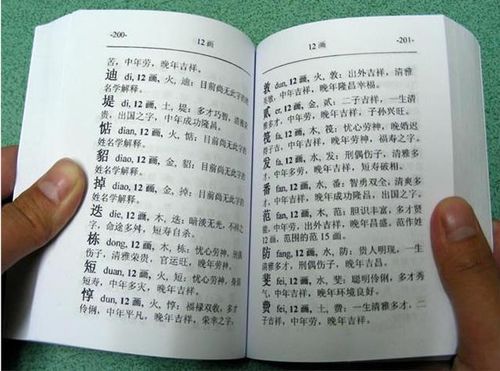 -200-
12画
苦，中年劳，晚年吉祥。
迪 di, 12 画, 火, 迪：目前尚无此字的
名学解释。
堤 di, 12 画, 土, 堤：多才巧智，清雅荣
贵，出国之字，中年成功隆昌。
惦 dian, 12 画, 火, 惦：目前尚无此字的
姓名学解释。
貂 diao, 12 画, 金, 貂：目前尚无此字的
姓名学解释。
掉 diao, 12 画, 金, 掉：目前尚无此字的
姓名学解释。
迭 die, 12 画, 木, 迭：暗淡无光，不祥之
字，命途多舛，短寿自杀。
栋 dong, 12 画, 木, 栋：忧心劳神，刑偶
伤子，清雅荣贵，官运旺，晚年劳神。
短 duan, 12 画, 火, 短：忧心劳神，身弱
短寿，中年多灾，晚年吉祥。
惇 dun, 12 画, 火, 惇：福禄双收，多才
伶俐，中年平凡，晚年吉祥，荣幸之字。
12画
-201-
敦 dun, 12 画, 火, 敦：出外吉祥，清雅
英敏，中年吉祥，晚年隆昌幸福。
贰 er, 12 画, 金, 贰：二子吉祥，一生清
雅多才，中年劳，晚年吉祥，子孙兴旺。
筏 fa, 12 画, 木, 筏：忧心劳神，晚婚迟
得子吉，中年吉祥，晚年劳神，福寿之字。
发 fa, 12 画, 水, 发：刑偶伤子，清雅多
才，中年多劳，晚年吉祥，短寿破相。
番 fan, 12 画, 水, 番：智勇双全，清爽多
才，中年吉祥，晚年成功隆昌，出国之字。
范 fan, 12 画, 木, 范：胆识丰富，多才贤
能，中年出外吉祥，晚年昌盛。范作姓
12 画，范围的范 15 画。
防 fang, 12 画, 水, 防：贵人明现，一生
清雅多才，刑偶伤子，晚年吉昌。
斐 fei, 12 画, 水, 斐：聪明伶俐，多才秀
气，中年吉祥，晚年环境良好。
费 fei, 12 画, 土, 费：一生清雅多才，二
子吉祥，中年劳，晚年吉祥。